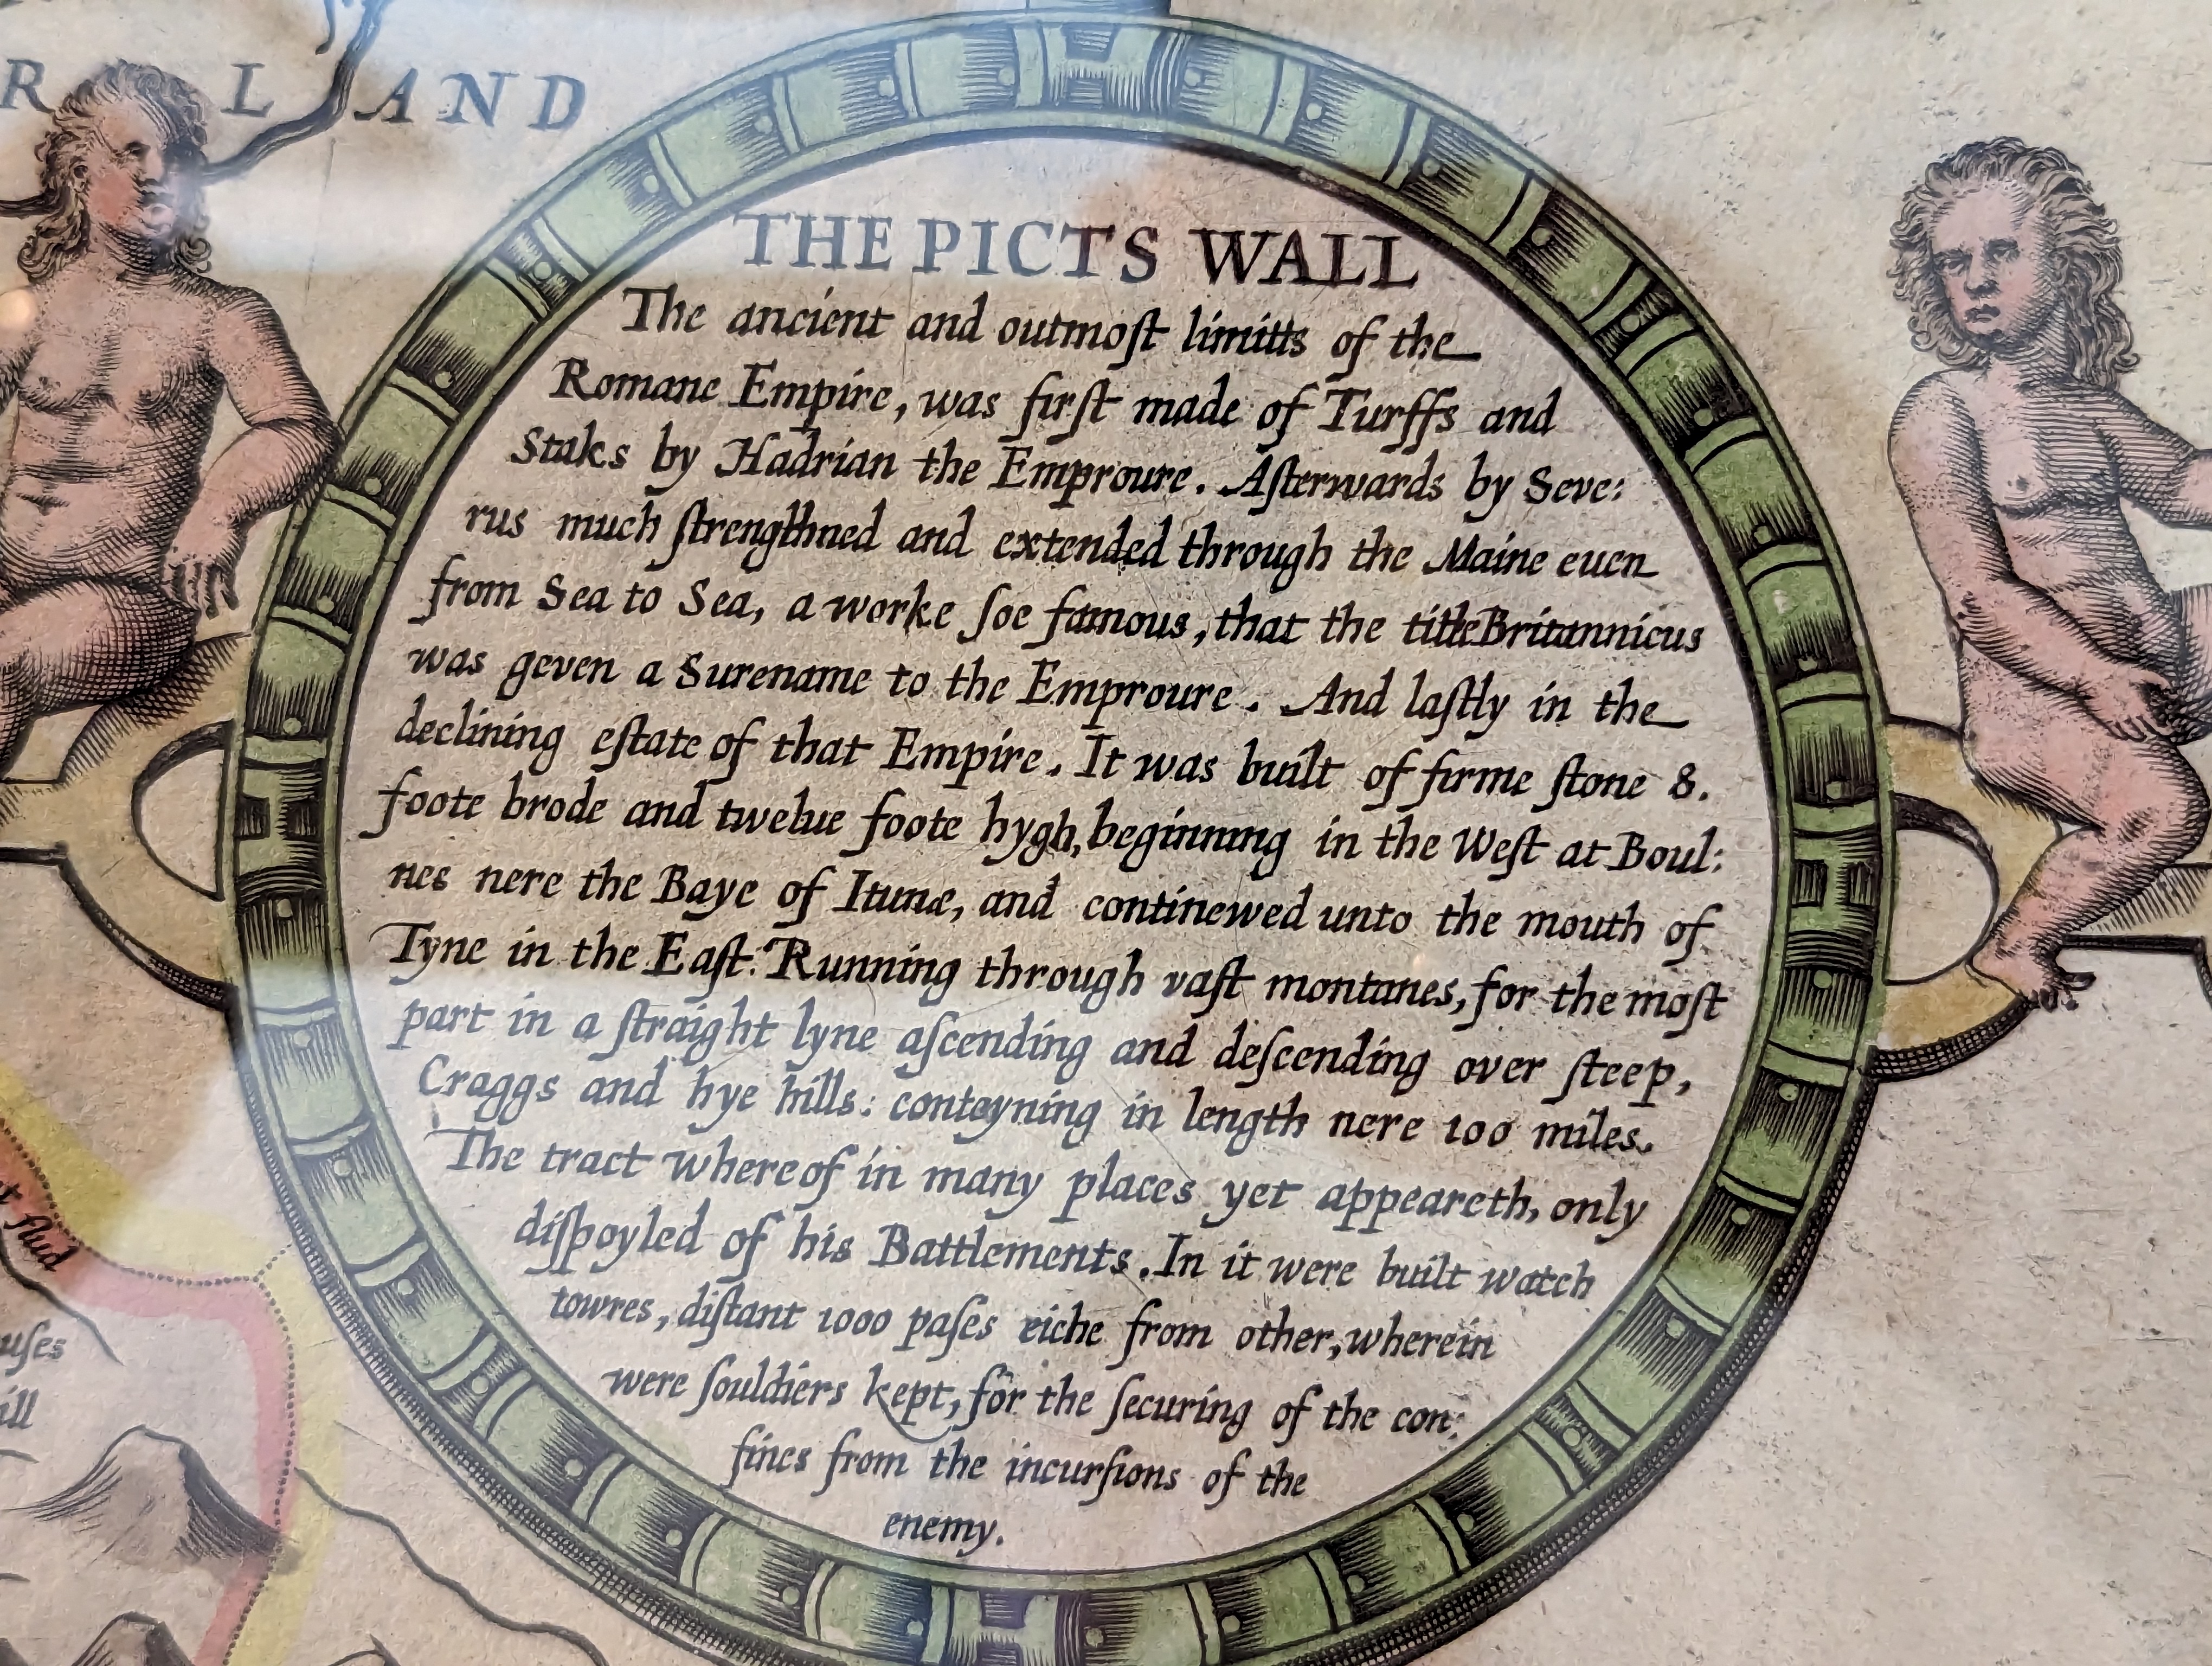 R L AND
THE PICTS WALL
The ancient and outmoſt limitts of the
Romane Empire, was firſt made of Turffs and
Staks by Hadrian the Emproure. Aſterwards by Seve:
rus much ſtrengthned and extended through the Maine euen
from Sea to Sea, a worke ſoe famous, that the title Britannicus
was geven a Surename to the Emproure. And laſtly in the
declining eſtate of that Empire. It was built of firme ſtone 8.
foote brode and twelue foote hygh, beginning in the Weſt at Boul:
nes nere the Baye of Itunæ, and continewed unto the mouth of
Tyne in the Eaſt: Running through vaſt montanes, for the moſt
part in a ſtraight lyne aſcending and deſcending over ſteep,
Craggs and hye hills: conteyning in length nere 100 miles.
The tract whereof in many places yet appeareth, only
diſpoyled of his Battlements. In it were built watch
towres, diſtant 1000 paſes eiche from other, wherein
were ſouldiers kept, for the ſecuring of the con:
fines from the incurſions of the
enemy.
t flud
uſes
ill